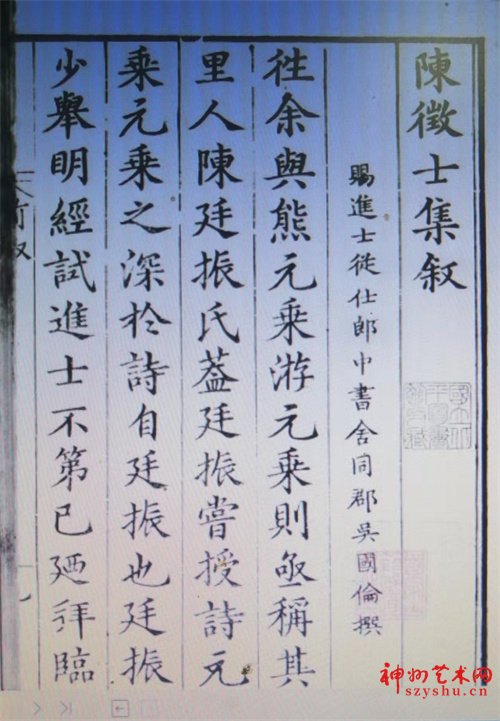 陳徵士集叙
賜進士徒仕郎中書舍同郡吳國倫撰
徃余與熊元乘游元乘則亟稱其
里人陳廷振氏葢廷振嘗授詩元
乘元乘之深扵詩自廷振也廷振
少舉明經試進士不第已廼拜臨
神州艺术网
szyshu.com